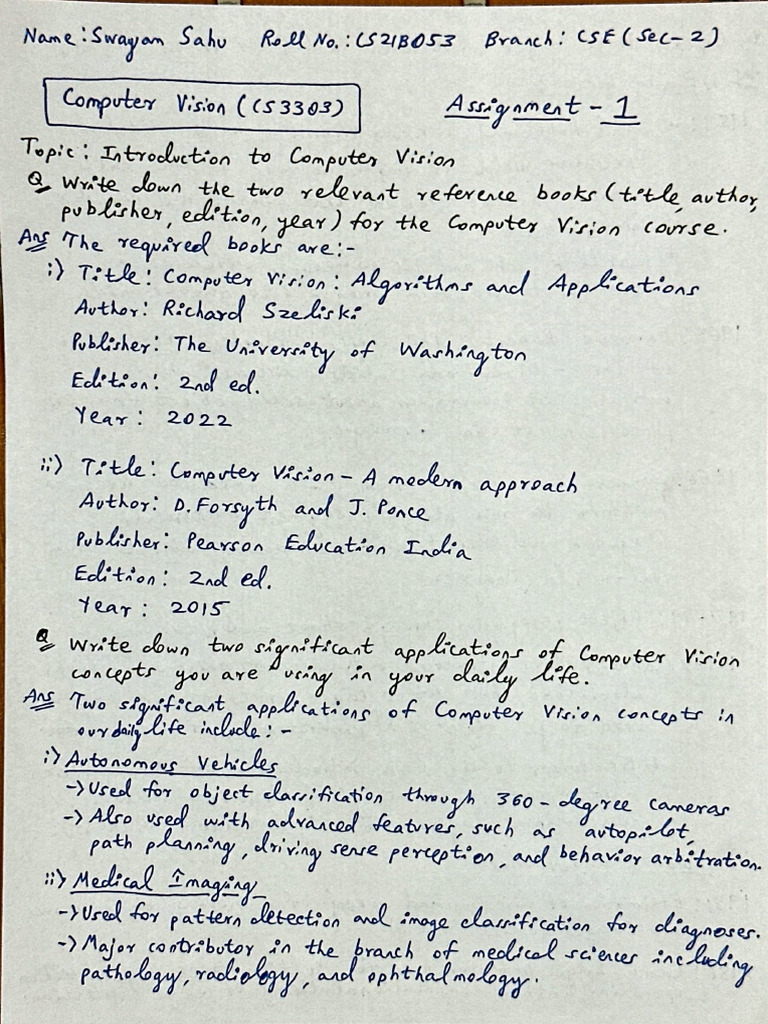 Name: Swayam Sahu Roll No.: CS21B053 Branch: CSE (Sec-2)
Computer Vision (CS3303) Assignment - 1
Topic: Introduction to Computer Vision
Q Write down the two relevant reference books (title, author,
publisher, edition, year) for the Computer Vision course.
Ans The required books are:-
i) Title: Computer Vision: Algorithms and Applications
Author: Richard Szeliski
Publisher: The University of Washington
Edition: 2nd ed.
Year: 2022
ii) Title: Computer Vision - A modern approach
Author: D. Forsyth and J. Ponce
Publisher: Pearson Education India
Edition: 2nd ed.
Year: 2015
Q Write down two significant applications of Computer Vision
concepts you are using in your daily life.
Ans Two significant applications of Computer Vision concepts in
our daily life include:-
i) Autonomous Vehicles
-> Used for object classification through 360-degree cameras
-> Also used with advanced features, such as autopilot,
path planning, driving sense perception, and behavior arbitration.
ii) Medical Imaging
-> Used for pattern detection and image classification for diagnoses.
-> Major contributor in the branch of medical sciences including
pathology, radiology, and ophthalmology.